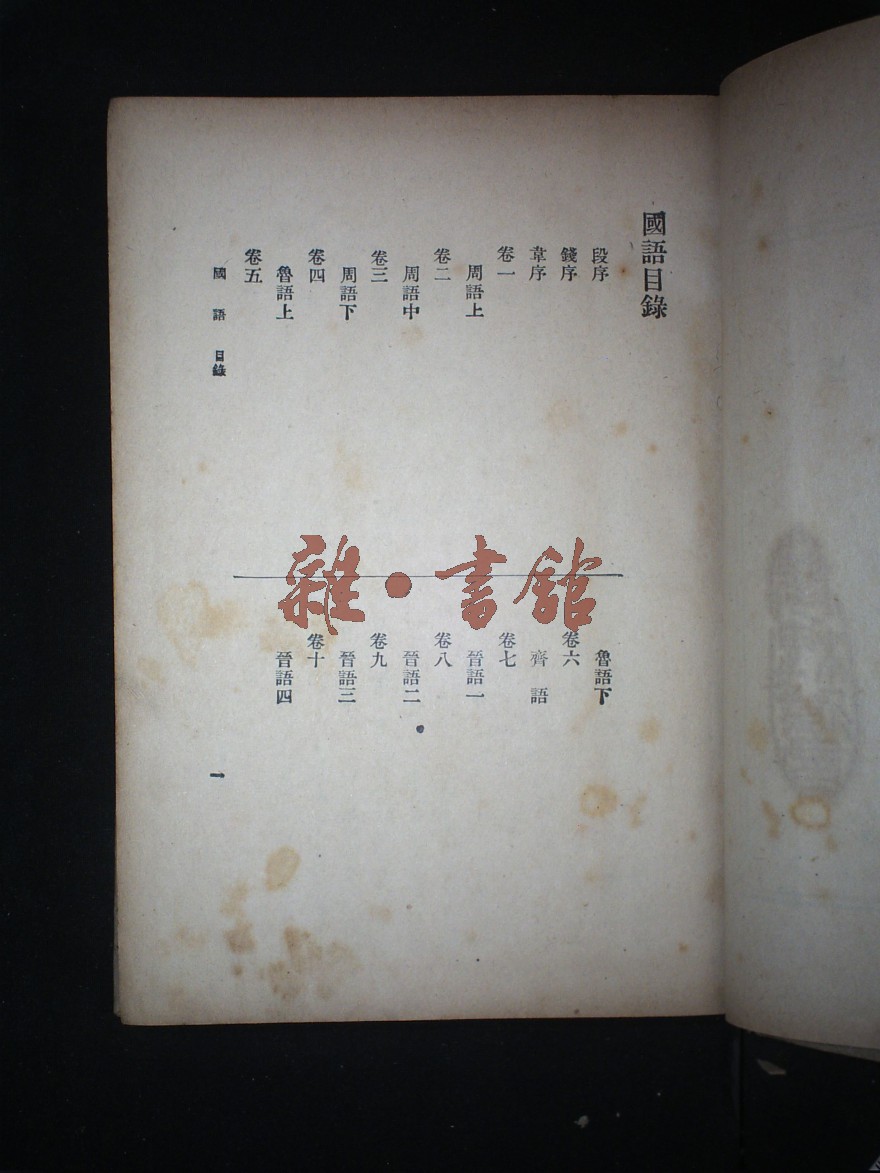 國語目錄
段序
錢序
韋序
卷一
周語上
卷二
周語中
卷三
周語下
卷四
魯語上
卷五
魯語下
卷六
齊語
卷七
晉語一
卷八
晉語二
卷九
晉語三
卷十
晉語四
國語 目錄
一
雜·書館